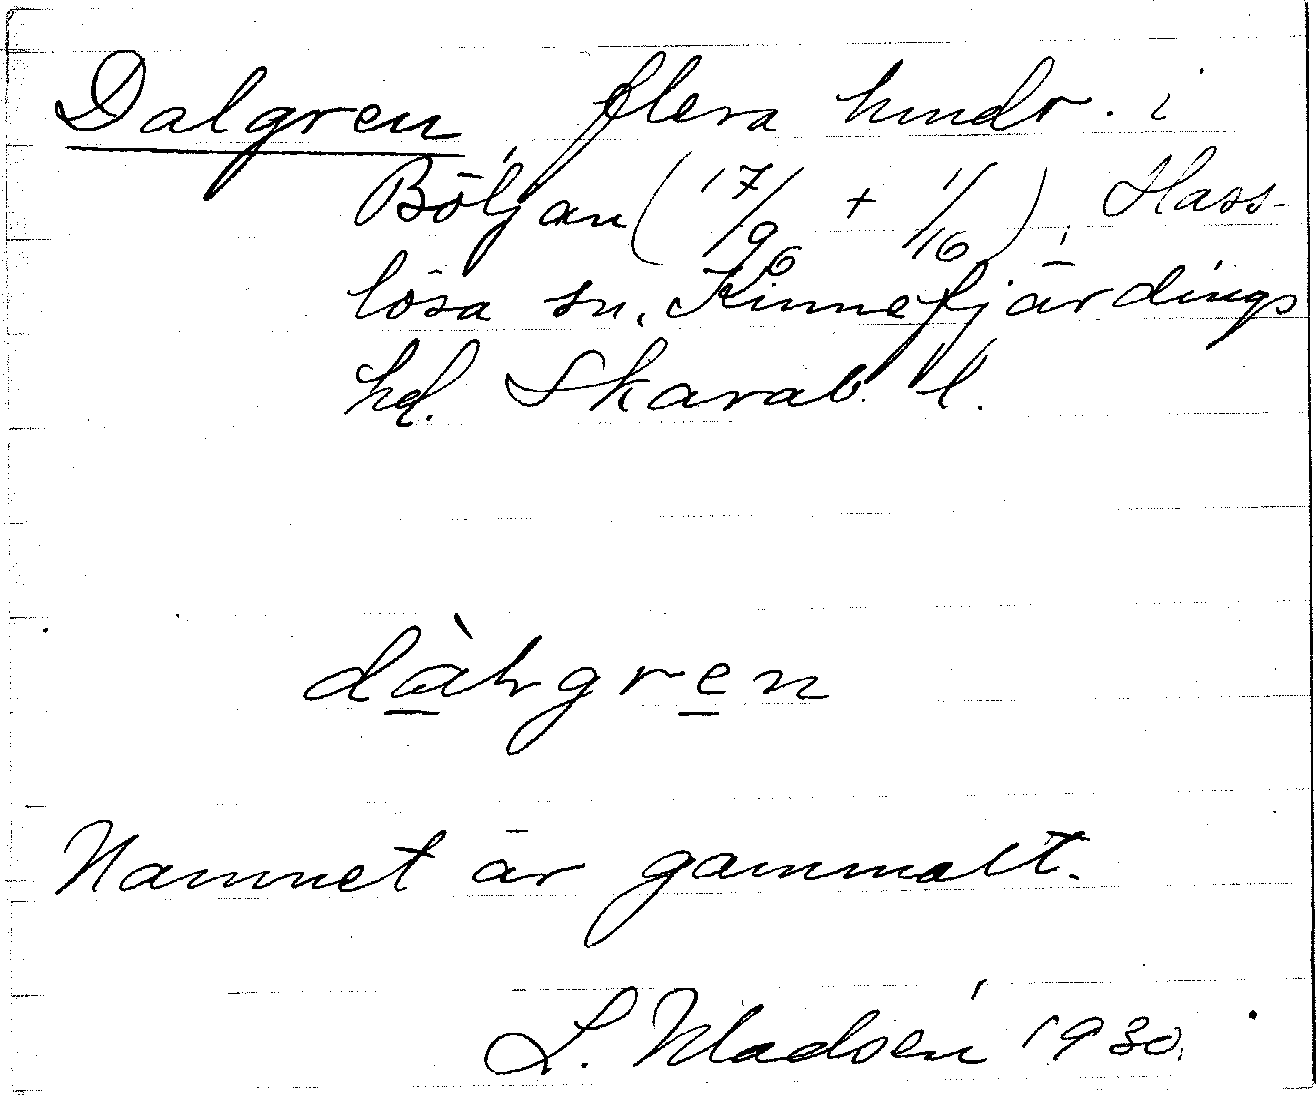 Dalgren, flera hundr. i
Böljan (17/96 + 1/16), Hass-
lösa sn, Kinnefjärdings
hd. Skarab. l.
dàlgren
Namnet är gammalt.
L. Madsén 1930.